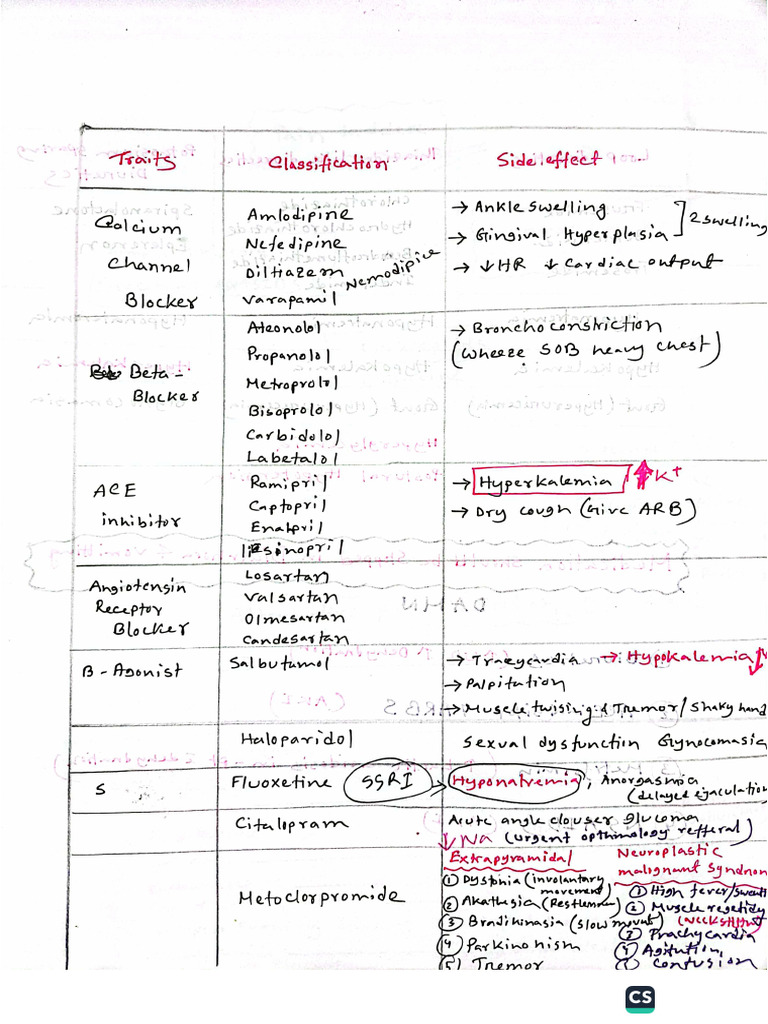 Traits Classification Side effect
Calcium
Channel
Blocker
Amlodipine
Nefedipine
Diltiazem
Nemodipice
Varapamil
→ Ankle swelling
→ Gingival Hyperplasia
2 swelling
→ ↓HR ↓ Cardiac output
Beta-
Blocker
Ateonolol
Propanolol
Metroprolol
Bisoprolol
Carbidolol
Labetalol
→ Bronchoconstriction
(Wheeze SOB heavy chest)
ACE
inhibitor
Ramipril
Captopril
Enalpril
lisinopril
→ Hyperkalemia ↑ K+
→ Dry cough (Give ARB)
Angiotensin
Receptor
Blocker
Losartan
Valsartan
Olmesartan
Candesartan
B-Agonist
Salbutamol
→ Tracycardia → Hypokalemia ↓
→ Palpitation
→ Muscle twising & Tremor / Shaky hand
Haloparidol
Sexual dysfunction Glynocomasia
S
Fluoxetine SSRI → Hyponatremia, Anorgasmia
(delayed ejaculation
Citalopram
Acute angle clouser glucoma
↓Na (urgent opthmology refferal)
Metoclorpromide
Extrapyramidal
① Dystonia (involantary
movement)
② Akathesia (Restlemen)
③ Bradikinasia (slow movmt)
④ Parkinonism
⑤ Tremor
Neuroplastic
malignant syndrom
① High fever/sweat
② Muscle regetidy
(neck stiffnes)
③ Trachycardia
④ Agitution
⑤ Confusion
CS